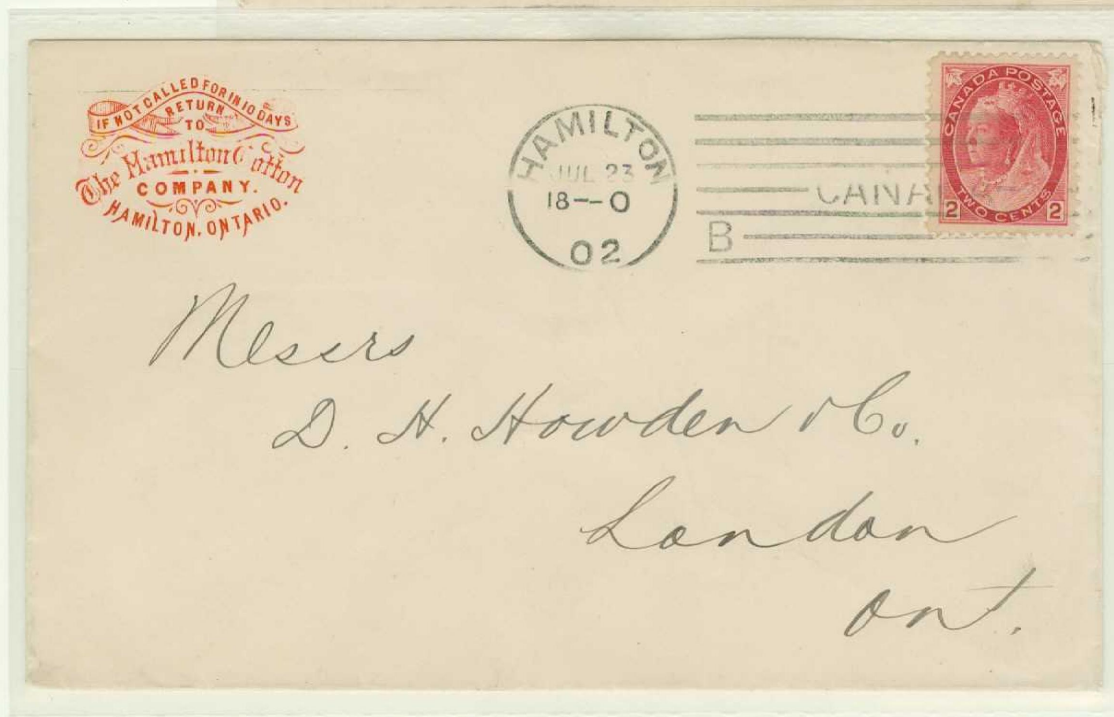 IF NOT CALLED FOR IN 10 DAYS
RETURN
TO
The Hamilton Cotton
COMPANY.
HAMILTON, ONTARIO.
HAMILTON
JUL 23
18-- 0
02
CANADA
B
CANADA POSTAGE
TWO CENTS
2 2
Messrs
D. H. Howden & Co.
London
Ont.